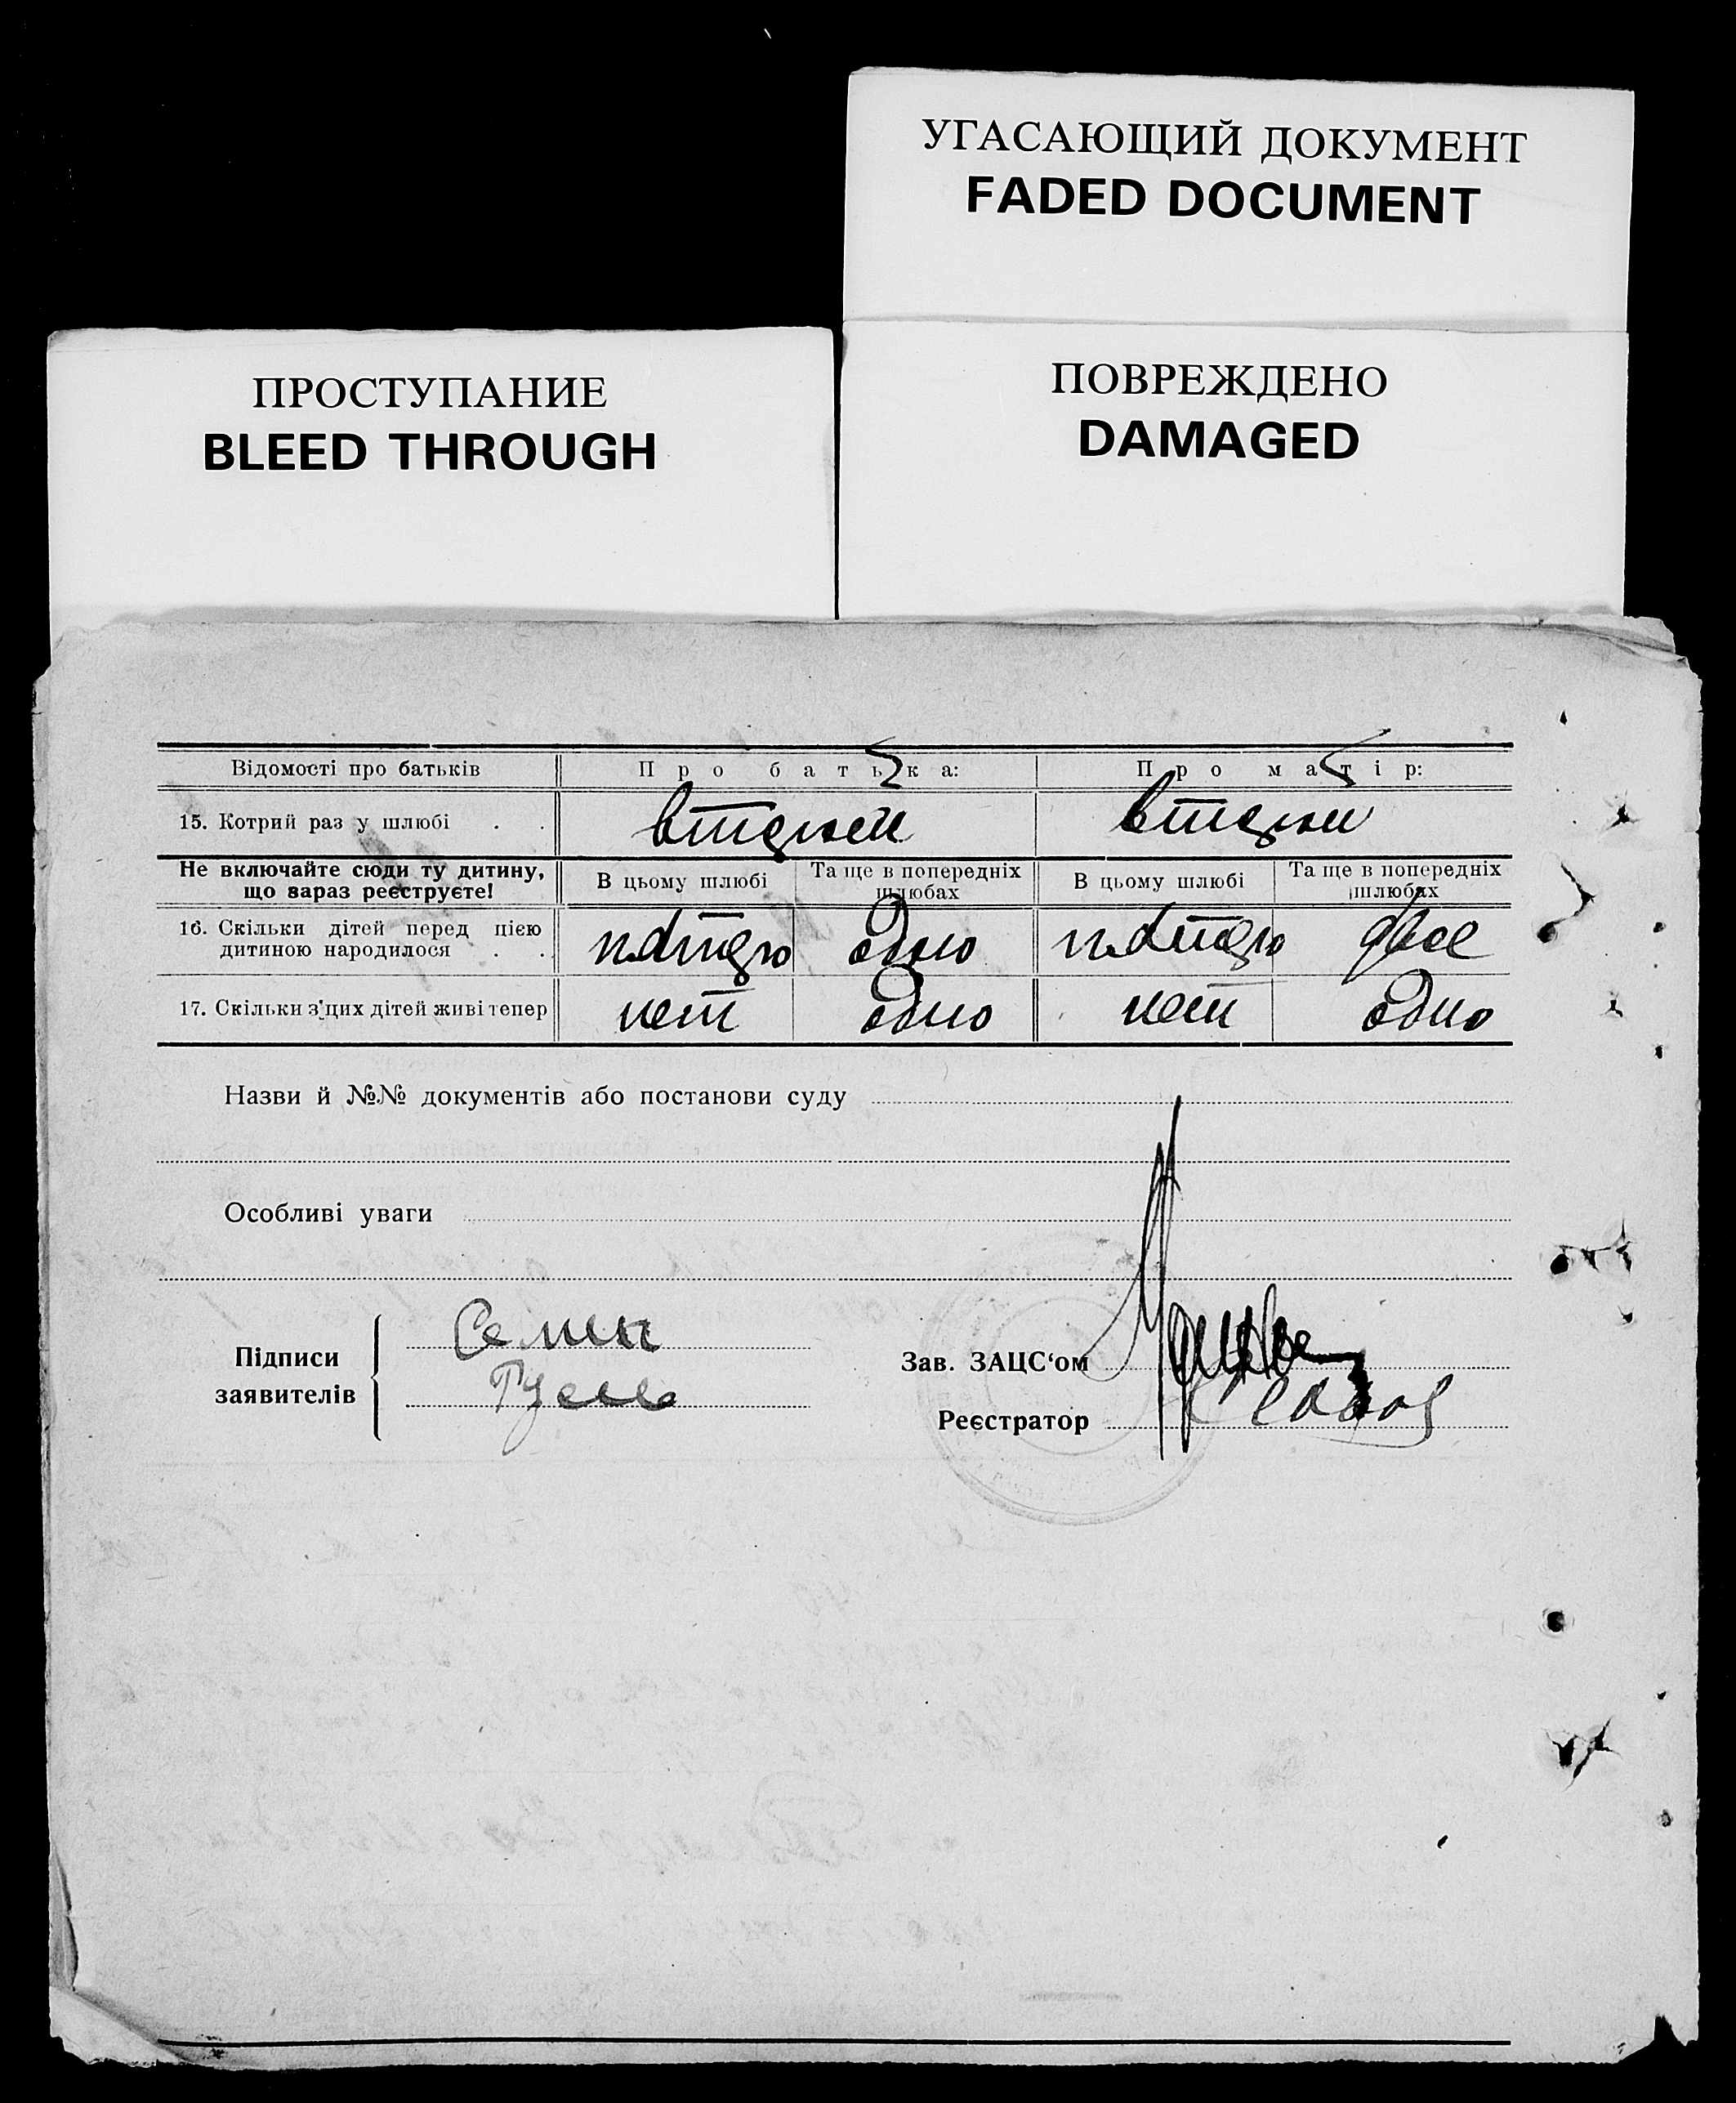 УГАСАЮЩИЙ ДОКУМЕНТ
FADED DOCUMENT
ПРОСТУПАНИЕ
BLEED THROUGH
ПОВРЕЖДЕНО
DAMAGED
Відомості про батьків Про батька: Про матір:
15. Котрий раз у шлюбі . .
Не включайте сюди ту дитину, що вараз реєструєте! В цьому шлюбі Та ще в попередніх шлюбах В цьому шлюбі Та ще в попередніх шлюбах
16. Скільки дітей перед цією
дитиною народилося . . одно двое
17. Скільки з цих дітей живі тепер нет одно нет одно
Назви й №№ документів або постанови суду
Особливі уваги
Підписи
заявителів
Зав. ЗАЦС‘ом
Реєстратор